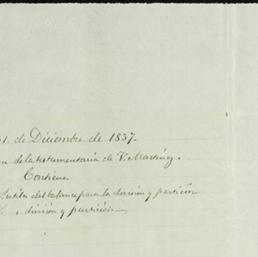 1. de Diciembre de 1837.
de la testamentaria de V. Martinez.
Contiene
del balance para la division y particion
" division y particion